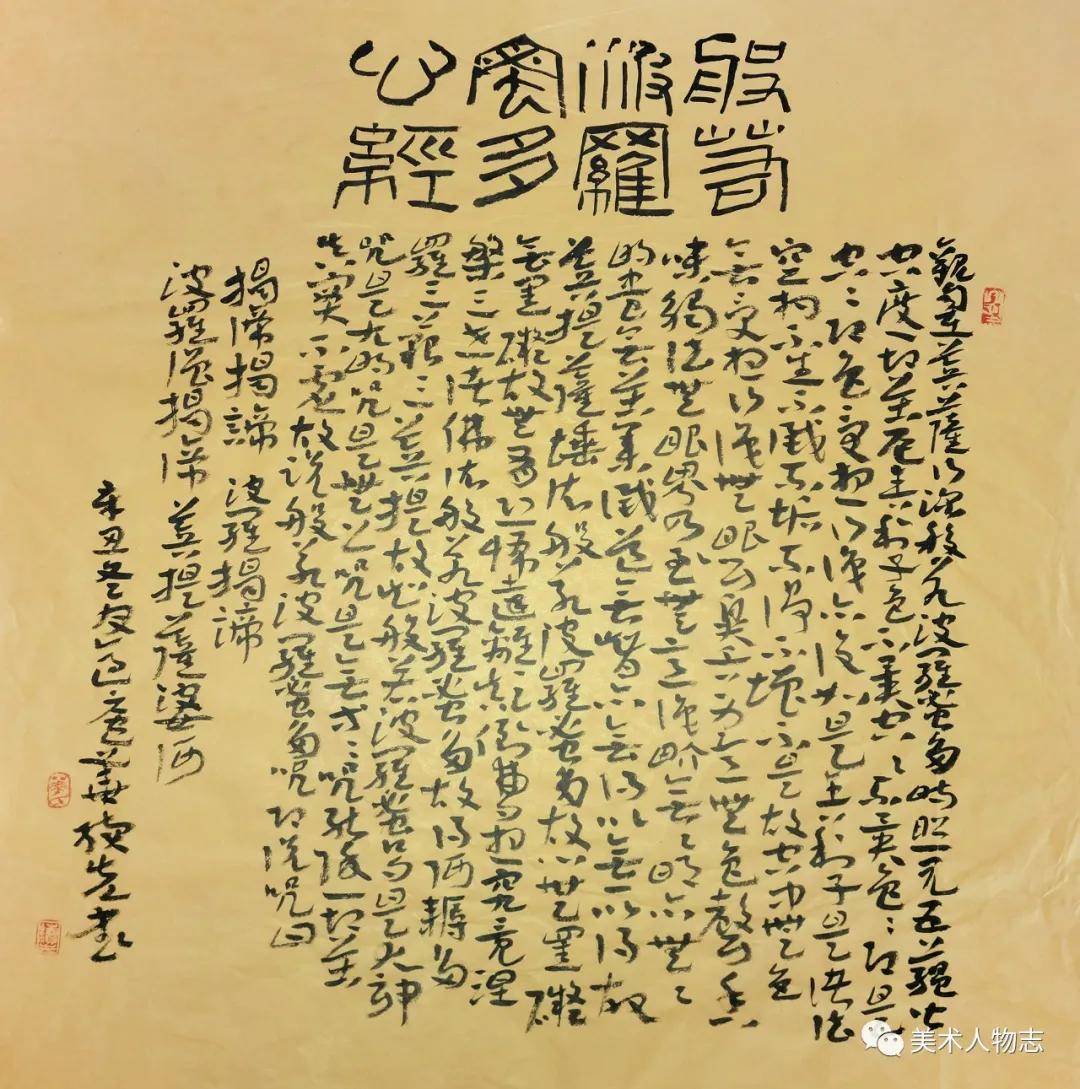 般若
波羅
蜜多
心經
觀自在菩薩行深般若波羅蜜多時照見五蘊皆
空度一切苦厄舍利子色不異空々不異色々即是
空々即是色受想行識亦復如是舍利子是諸法
空相不生不滅不垢不淨不增不是故空中無色
無受想行識無眼耳鼻舌身意無色聲香
味觸法無眼界乃至無意識界無々明亦無々
明盡無苦集滅道無智亦無得以無所得故
菩提薩埵依般若波羅蜜多故心無罣礙
無罣礙故無有恐怖遠離顛倒夢想究竟涅
槃三世諸佛依般若波羅蜜多故得阿耨多
羅三藐三菩提故知般若波羅蜜多是大神
咒是大明咒是無上咒是無等々咒能除一切苦
真實不虛故說般若波羅蜜多咒即說咒曰
揭諦揭諦 波羅揭諦
波羅僧揭諦 菩提薩婆訶
辛丑冬
美术人物志